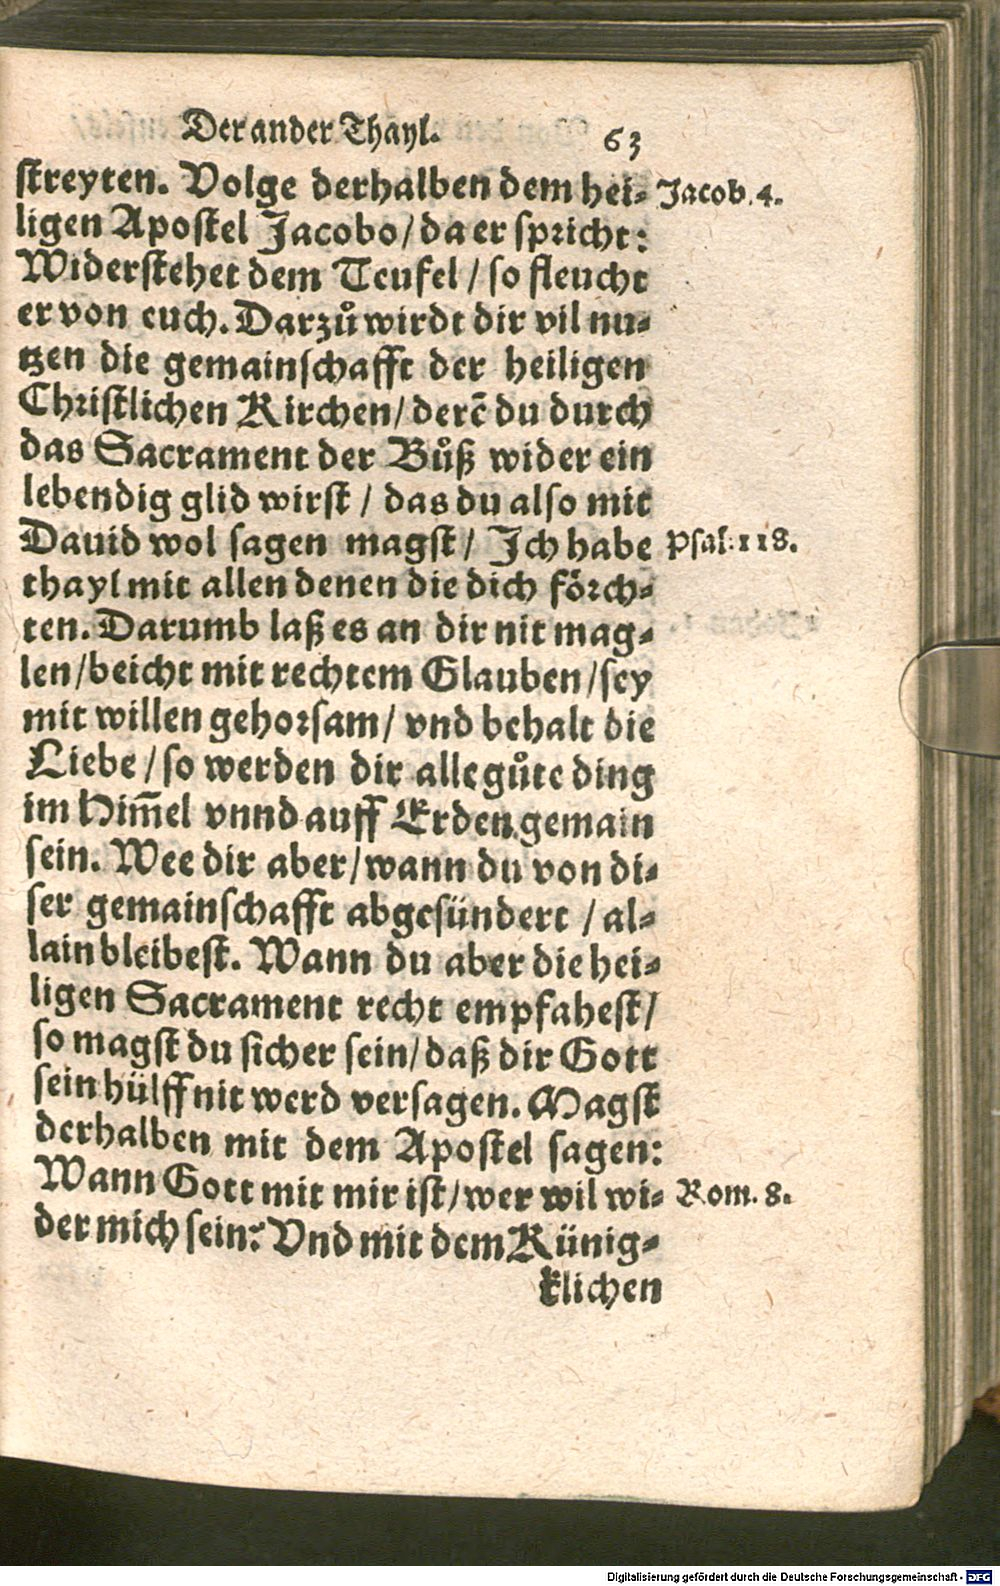 Der ander Thayl. 63
streyten. Volge derhalben dem hei- Jacob. 4.
ligen Apostel Jacobo/ da er spricht:
Widerstehet dem Teufel / so fleucht
er von euch. Darzů wirdt dir vil nu-
tzen die gemainschafft der heiligen
Christlichen Kirchen/ derẽ du durch
das Sacrament der Bůß wider ein
lebendig glid wirst / das du also mit
Dauid wol sagen magst/ Ich habe Psal. 118.
thayl mit allen denen die dich förch-
ten. Darumb laß es an dir nit mag-
len/beicht mit rechtem Glauben/sey
mit willen gehorsam/ vnd behalt die
Liebe/so werden dir alle gůte ding
im Him̃el vnnd auff Erden gemain
sein. Wee dir aber/wann du von di-
ser gemainschafft abgesündert / al-
lain bleibest. Wann du aber die hei-
ligen Sacrament recht empfahest/
so magst du sicher sein/daß dir Gott
sein hülff nit werd versagen. Magst
derhalben mit dem Apostel sagen:
Wann Gott mit mir ist/wer wil wi- Rom. 8.
der mich sein? Vnd mit dem Künig-
klichen
Digitalisierung gefördert durch die Deutsche Forschungsgemeinschaft - DFG